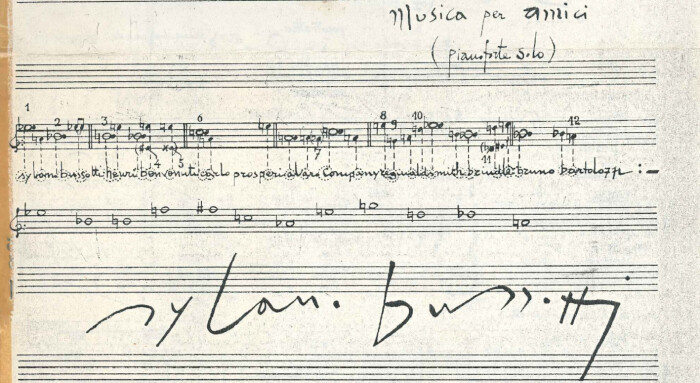 Musica per amici
(pianoforte solo)
1 2 3 6 8 9 10 12
4 5 7 11
sylvano bussotti henri benvenuti carlo prosperi alvaro company reginald smith brindle bruno bartolozzi :—
sylvano bussotti